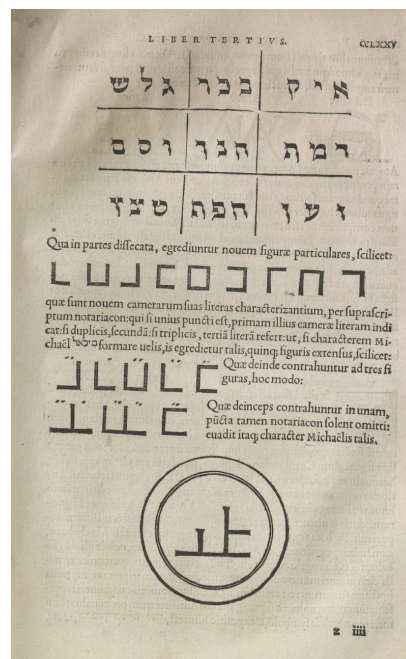 LIBER TERTIVS. CCLXXV
איק בכר גלש
דמת הנך וסם
זען חפף טצץ
Qua in partes dissecata, egrediuntur nouem figuræ particulares, scilicet:
quæ sunt nouem camerarum suas literas characterizantium, per suprascri-
ptum notariacon: qui si unius puncti est, primam illius cameræ literam indi
cat: si duplicis, secundā: si triplicis, tertiā literā refert: ut, si characterem Mi-
chaël מיכאל formare uelis, is egredietur talis, quinq; figuris extensus, scilicet:
Quæ deinde contrahuntur ad tres fi
guras, hoc modo:
Quæ deinceps contrahuntur in unam,
pūcta tamen notariacon solent omitti:
euadit itaq; character Michaëlis talis.
z iiii